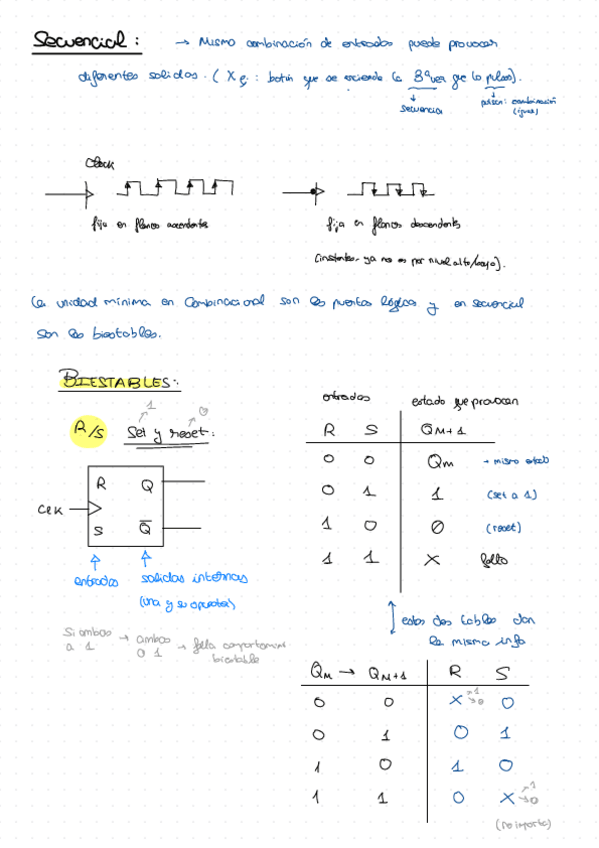 Secuencial: → Misma combinación de entradas puede provocar
diferentes salidas. (X ej: botón que se enciende la 3ª vez que lo pulsas).
secuencia
pulsar: combinación
(igual)
Clock
fija en flancos ascendentes
fija en flancos descendentes
(instantes, ya no es por nivel alto/bajo).
La unidad mínima en Combinacional son las puertas lógicas y en secuencial
son los biestables.
BIESTABLES:
1 0
R/S Set y reset:
R Q
CLK
S Q̅
entradas
salidas internas
(una y su opuesta)
Si ambas → ambas → falla comportament
a 1 0 1 biestable
entradas estado que provocan
R S QM+1
0 0 QM → mismo estado
0 1 1 (set a 1)
1 0 0 (reset)
1 1 X fallo
estas dos tablas dan
la misma info
QM → QM+1 R S
0 0 X →1 →0 0
0 1 0 1
1 0 1 0
1 1 0 X →1 →0
(no importa)